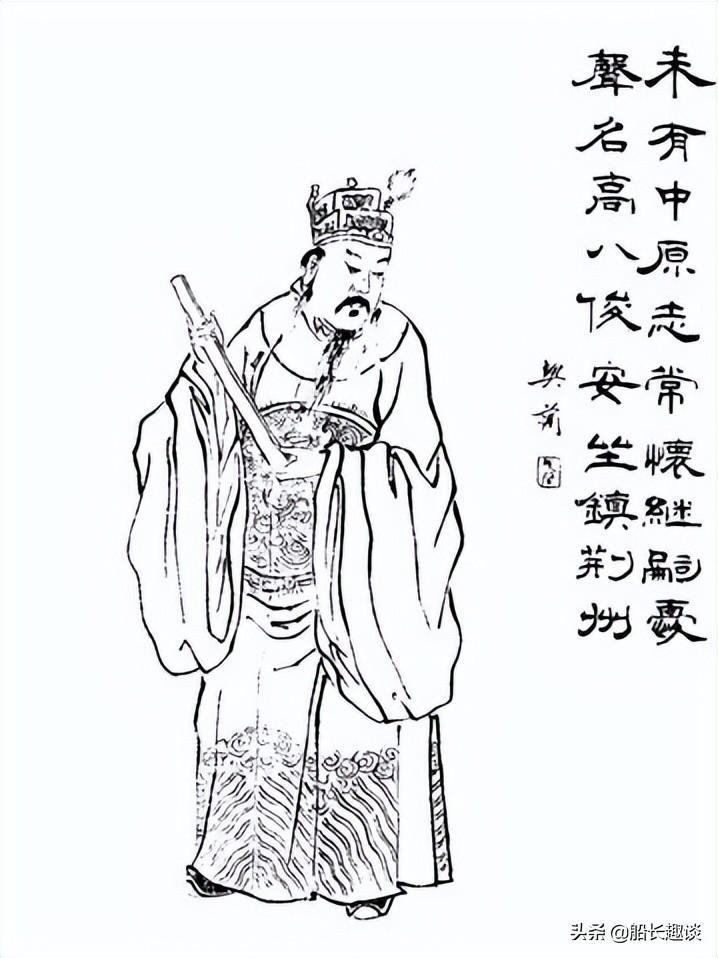 未有中原志常懷継嗣憂
聲名高八俊安坐鎮荆州
头条 @船长趣谈